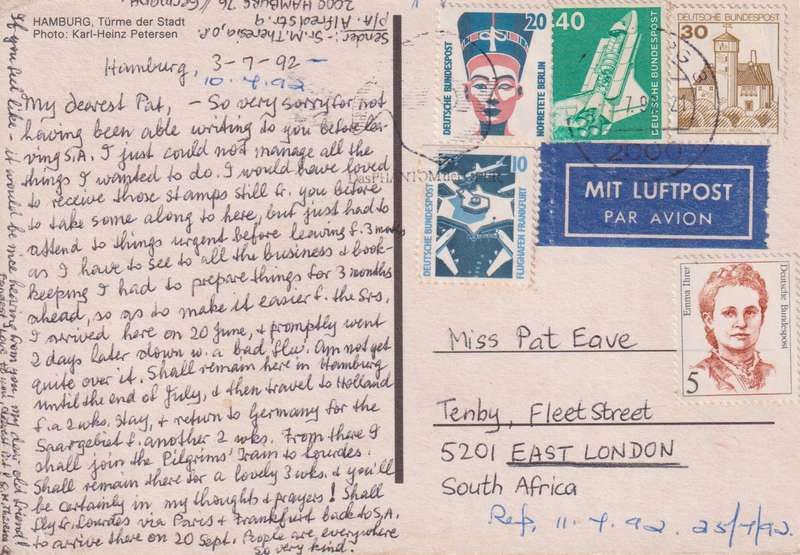 HAMBURG, Türme der Stadt
Photo: Karl-Heinz Petersen
Sender:- Sr. M. Theresia, O.P.
p/A. Alfredstr 9
2000 HAMBURG 76 / Germany
Hamburg, 3-7-92 -
10.7.92
My dearest Pat, - So very sorry for not
having been able writing to you before lea-
ving S.A. I just could not manage all the
things I wanted to do. I would have loved
to receive those stamps still fr. you before
to take some along to here, but just had to
attend to things urgent before leaving f. 3 months
as I have to see to all the business & book-
keeping I had to prepare things for 3 months
ahead, so as to make it easier f. the Srs.
I arrived here on 20 June, & promptly went
2 days later down w. a bad flu. Am not yet
quite over it. Shall remain here in Hamburg
until the end of July, & then travel to Holland
f. a 2 wks. stay, & return to Germany for the
Saargebiet f. another 2 wks. From there I
shall join the Pilgrims' Train to Lourdes.
Shall remain there for a lovely 3 wks. & you'll
be certainly in my thoughts & prayers! Shall
fly fr. Lourdes via Paris & Frankfurt back to S.A.
to arrive there on 20 Sept. People are everywhere
so very kind.
If you feel like - it would be nice hearing from you my dear old friend!
Fondest love to you dearest Pat fr. Sr. M. Theresia O.P.
DEUTSCHE BUNDESPOST
20
NOFRETETE BERLIN
40
DEUTSCHE BUNDESPOST
DEUTSCHE BUNDESPOST
30
DEUTSCHE BUNDESPOST
10
FLUGHAFEN FRANKFURT
Das PHANTOM der OPER
2000
MIT LUFTPOST
PAR AVION
Emma Ihrer
Deutsche Bundespost
5
Miss Pat Eave
Tenby, Fleet Street
5201 EAST LONDON
South Africa
Rep. 11.7.92. 25/7/92.